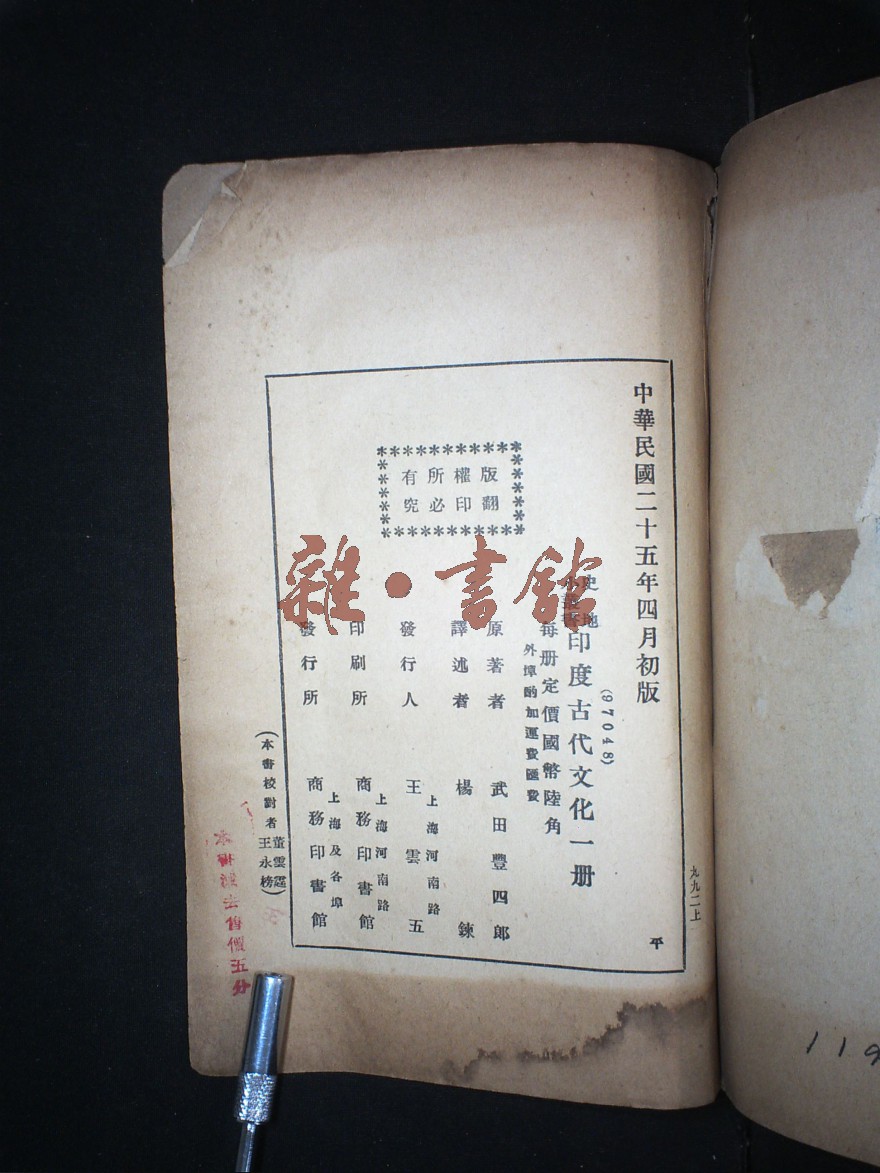 中華民國二十五年四月初版
(97048)
史地
小叢書
印度古代文化一册
每册定價國幣陸角
外埠酌加運費匯費
版權所有
翻印必究
原著者 武田豐四郎
譯述者 楊鍊
發行人 王雲五
上海河南路
印刷所 商務印書館
上海河南路
發行所 商務印書館
上海及各埠
(本書校對者 董雲霆 王永榜)
九九二上
平
雜·書館
售價五分
119